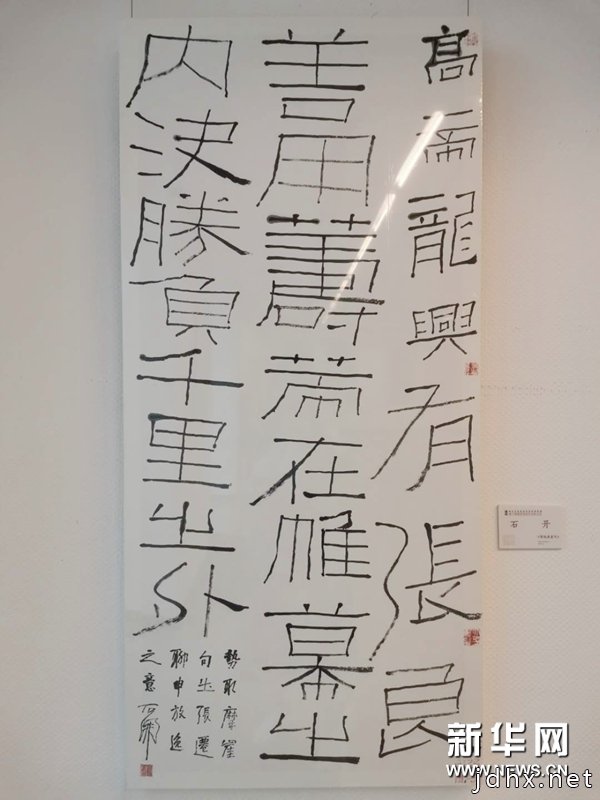 高帝龍興有張良
善用籌策在帷幕之
内決勝負千里之外
勢取摩崖
句出張遷
聊申放逸
之意石開
石 开
新华网
WWW.NEWS.CN
jdhx.net